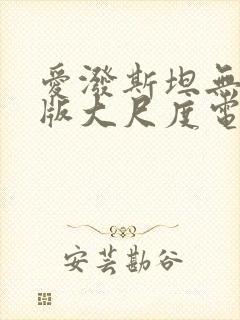 愛潑斯坦無
版大尺度電
安芸勘谷